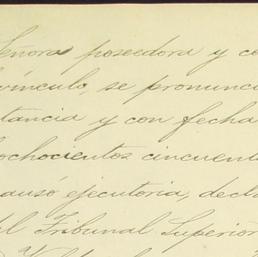 Señora poseedora y ce
vínculo, se pronunci
tancia y con fecha
ochocientos cincuent
causó ejecutoria, decla
del Tribunal Superior